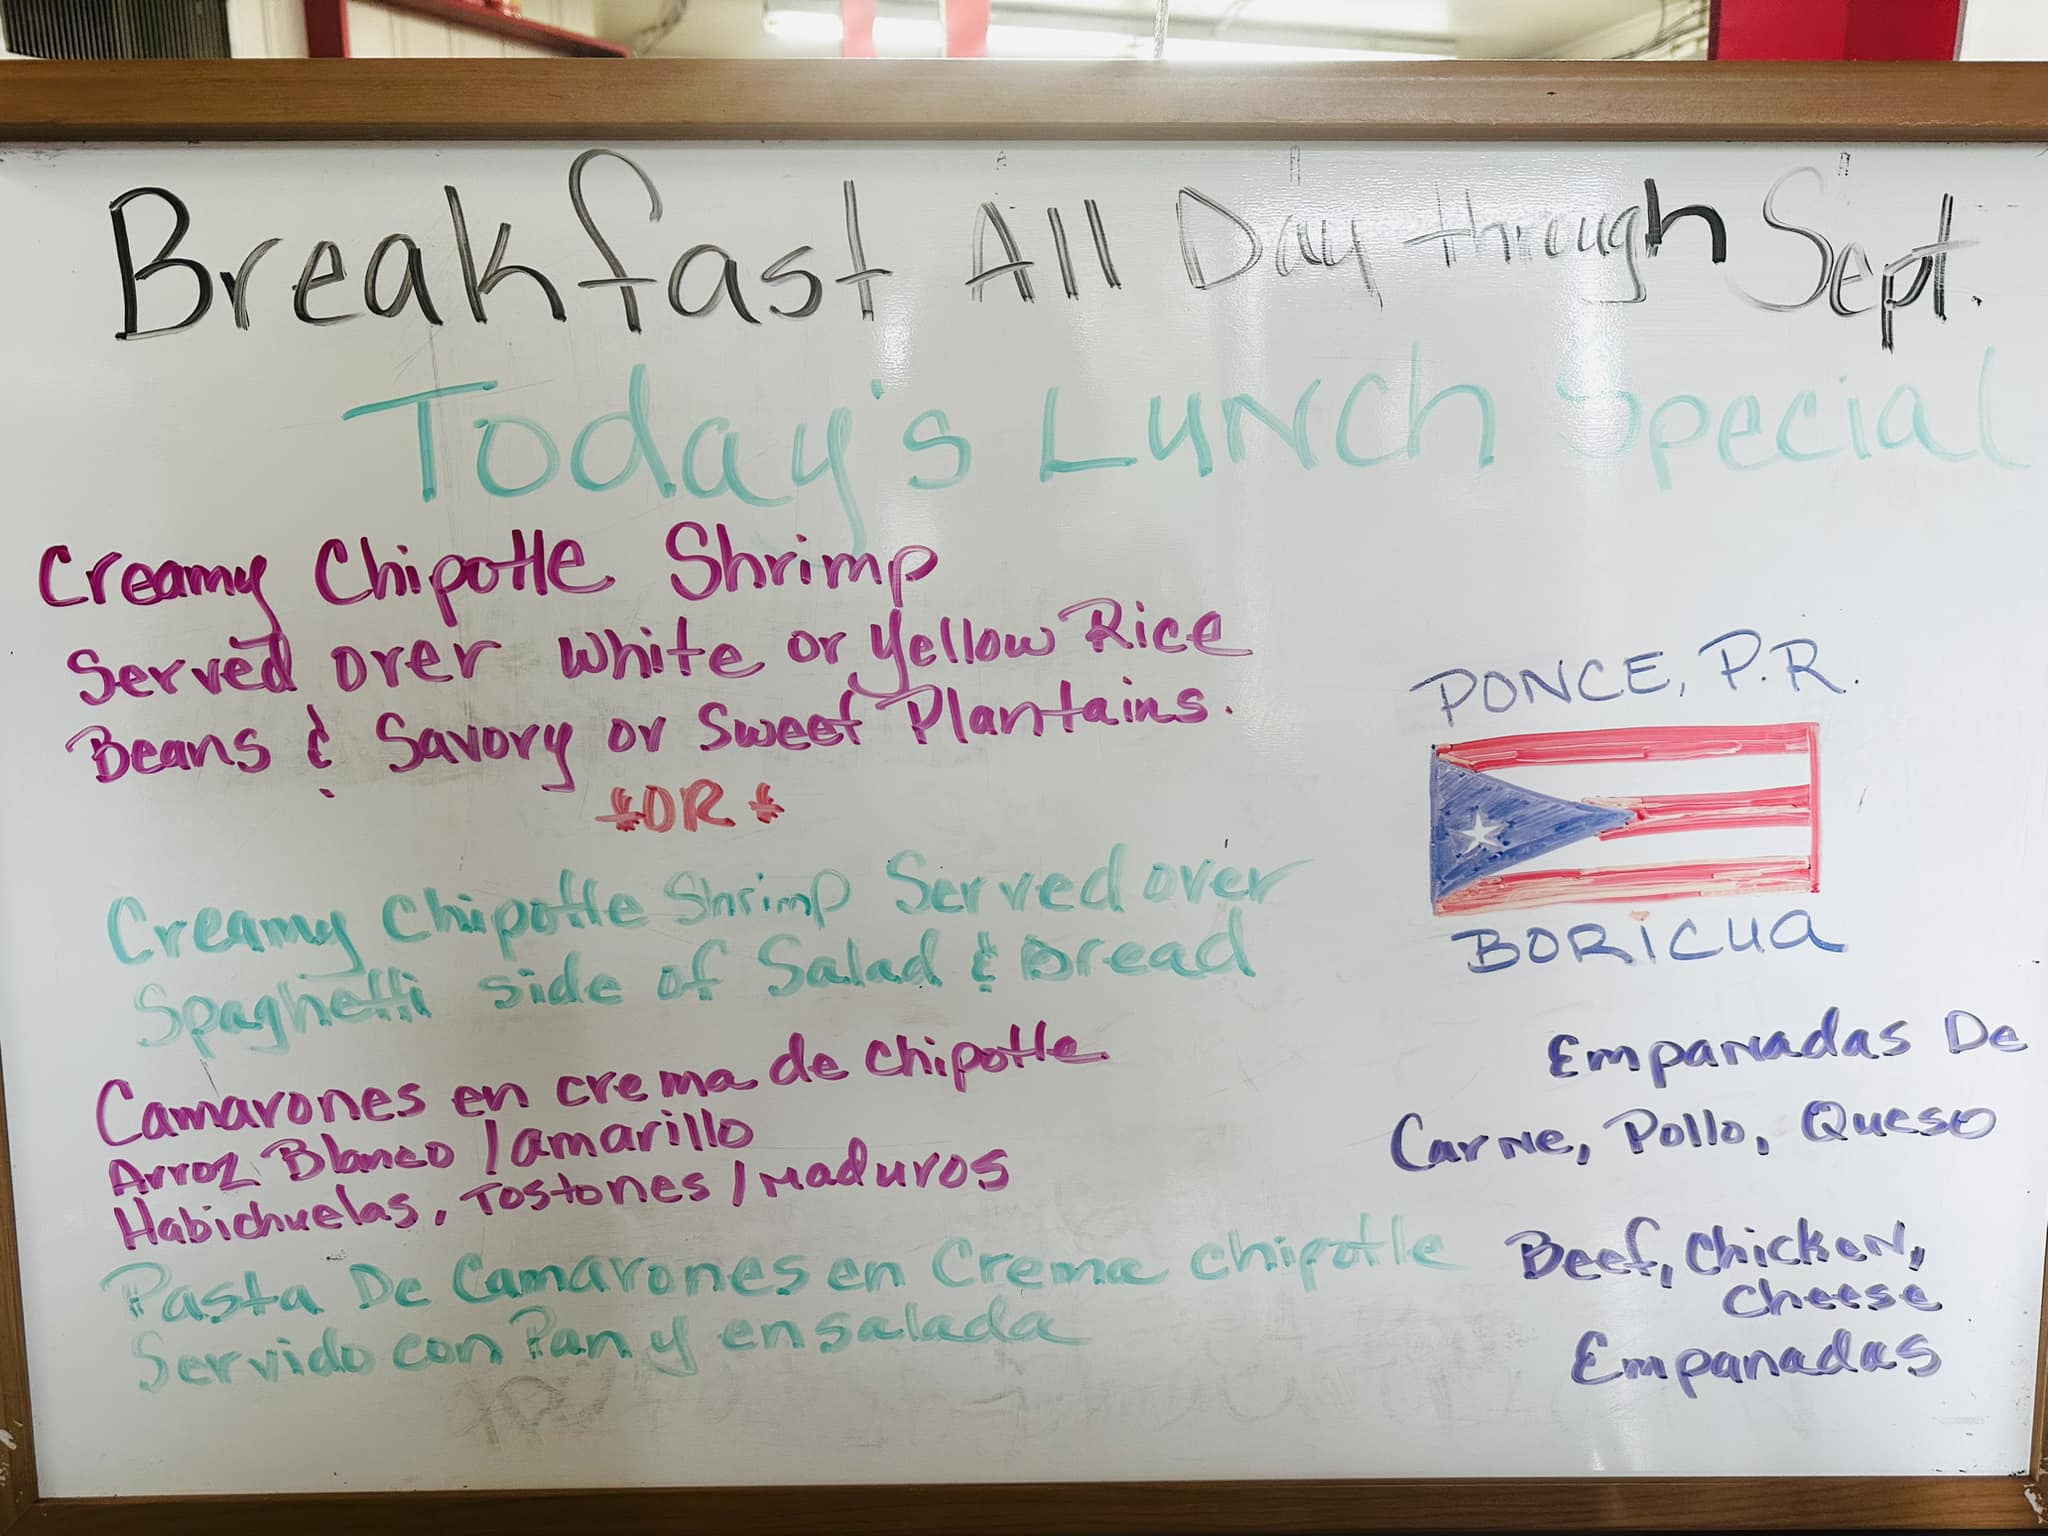 Breakfast All Day through Sept.
Today's Lunch Special
Creamy Chipotle Shrimp
Served over white or Yellow Rice
Beans & Savory or Sweet Plantains.
*OR*
Creamy Chipotle Shrimp Served over
Spaghetti side of Salad & Bread
Camarones en crema de chipotle
Arroz Blanco / amarillo
Habichuelas, Tostones / Maduros
Pasta De Camarones en Crema chipotle
Servido con Pan y ensalada
PONCE, P.R.
BORICUA
Empanadas De
Carne, Pollo, Queso
Beef, Chicken,
Cheese
Empanadas